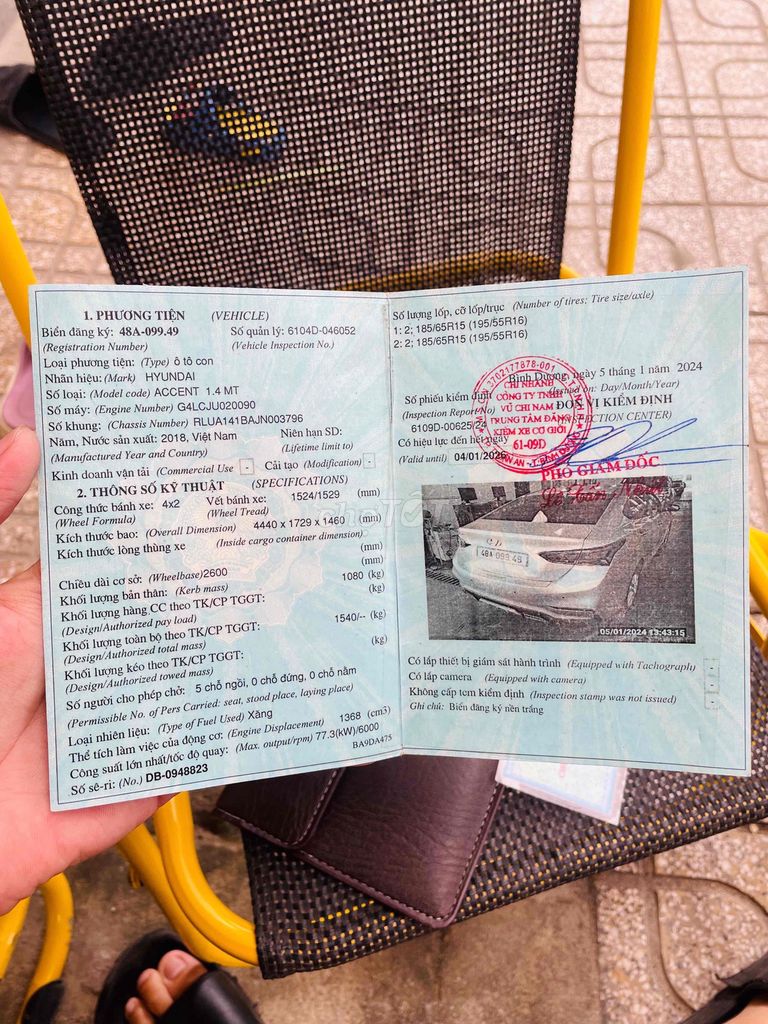 1. PHƯƠNG TIỆN (VEHICLE)
Biển đăng ký: 48A-099.49 Số quản lý: 6104D-046052
(Registration Number) (Vehicle Inspection No.)
Loại phương tiện: (Type) ô tô con
Nhãn hiệu: (Mark) HYUNDAI
Số loại: (Model code) ACCENT 1.4 MT
Số máy: (Engine Number) G4LCJU020090
Số khung: (Chassis Number) RLUA141BAJN003796
Năm, Nước sản xuất: 2018, Việt Nam Niên hạn SD:
(Manufactured Year and Country) (Lifetime limit to)
Kinh doanh vận tải (Commercial Use - Cải tạo (Modification) -
2. THÔNG SỐ KỸ THUẬT (SPECIFICATIONS)
Công thức bánh xe: 4x2 Vết bánh xe: 1524/1529 (mm)
(Wheel Formula) (Wheel Tread)
Kích thước bao: (Overall Dimension) 4440 x 1729 x 1460 (mm)
Kích thước lòng thùng xe (Inside cargo container dimension)
(mm)
Chiều dài cơ sở: (Wheelbase)2600 (mm)
Khối lượng bản thân: (Kerb mass) 1080 (kg)
Khối lượng hàng CC theo TK/CP TGGT: (kg)
(Design/Authorized pay load)
Khối lượng toàn bộ theo TK/CP TGGT: 1540/-- (kg)
(Design/Authorized total mass)
Khối lượng kéo theo TK/CP TGGT: (kg)
(Design/Authorized towed mass)
Số người cho phép chở: 5 chỗ ngồi, 0 chỗ đứng, 0 chỗ nằm
(Permissible No. of Pers Carried: seat, stood place, laying place)
Loại nhiên liệu: (Type of Fuel Used) Xăng
Thể tích làm việc của động cơ: (Engine Displacement) 1368 (cm3)
Công suất lớn nhất/tốc độ quay: (Max. output/rpm) 77.3(kW)/6000
Số sê-ri: (No.) DB-0948823 BA9DA475
Số lượng lốp, cỡ lốp/trục (Number of tires; Tire size/axle)
1: 2; 185/65R15 (195/55R16)
2: 2; 185/65R15 (195/55R16)
Bình Dương, ngày 5 tháng 1 năm 2024
(Issued on: Day/Month/Year)
Số phiếu kiểm định ĐƠN VỊ KIỂM ĐỊNH
(Inspection Report No) (INSPECTION CENTER)
6109D-00625/24
Có hiệu lực đến hết ngày
(Valid until) 04/01/2026
3702177878-001
CHI NHÁNH
CÔNG TY TNHH
VŨ CHI NAM
TRUNG TÂM ĐĂNG
KIỂM XE CƠ GIỚI
61-09D
PHÓ GIÁM ĐỐC
chợTỐT
48A 099.49
05/01/2024 13:43:15
Có lắp thiết bị giám sát hành trình (Equipped with Tachograph) -
Có lắp camera (Equipped with camera) -
Không cấp tem kiểm định (Inspection stamp was not issued) -
Ghi chú: Biển đăng ký nền trắng